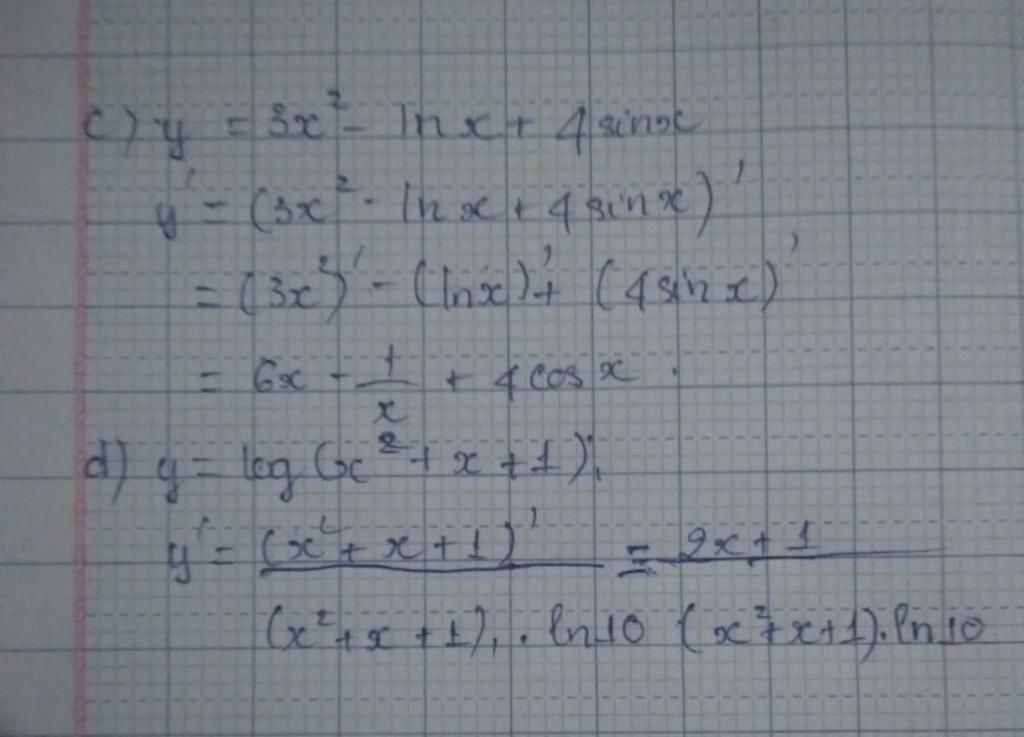 c) y = 3x² - lnx + 4sinx
y' = (3x² - lnx + 4sinx)'
= (3x²)' - (lnx)' + (4sinx)'
= 6x - 1/x + 4cosx.
d) y = log(x² + x + 1);
y' = (x² + x + 1)' / (x² + x + 1).ln10 = 2x + 1 / (x² + x + 1).ln10